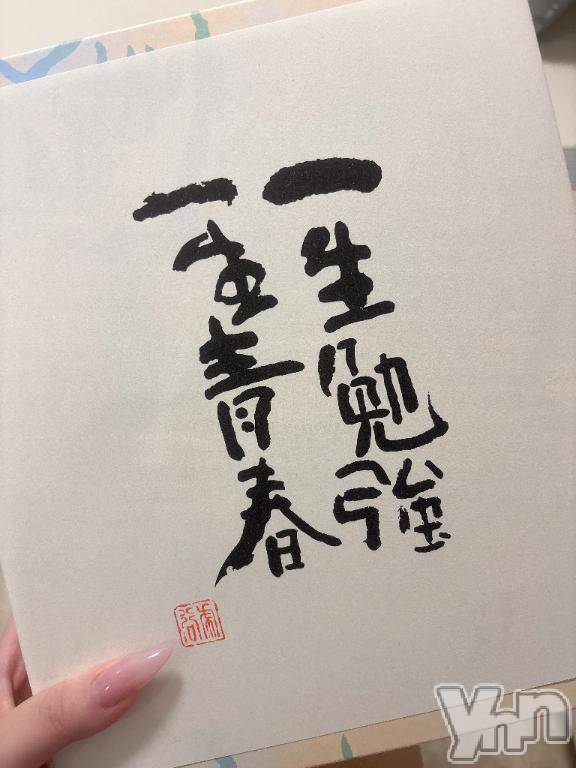 一生勉強
一生青春
YNN